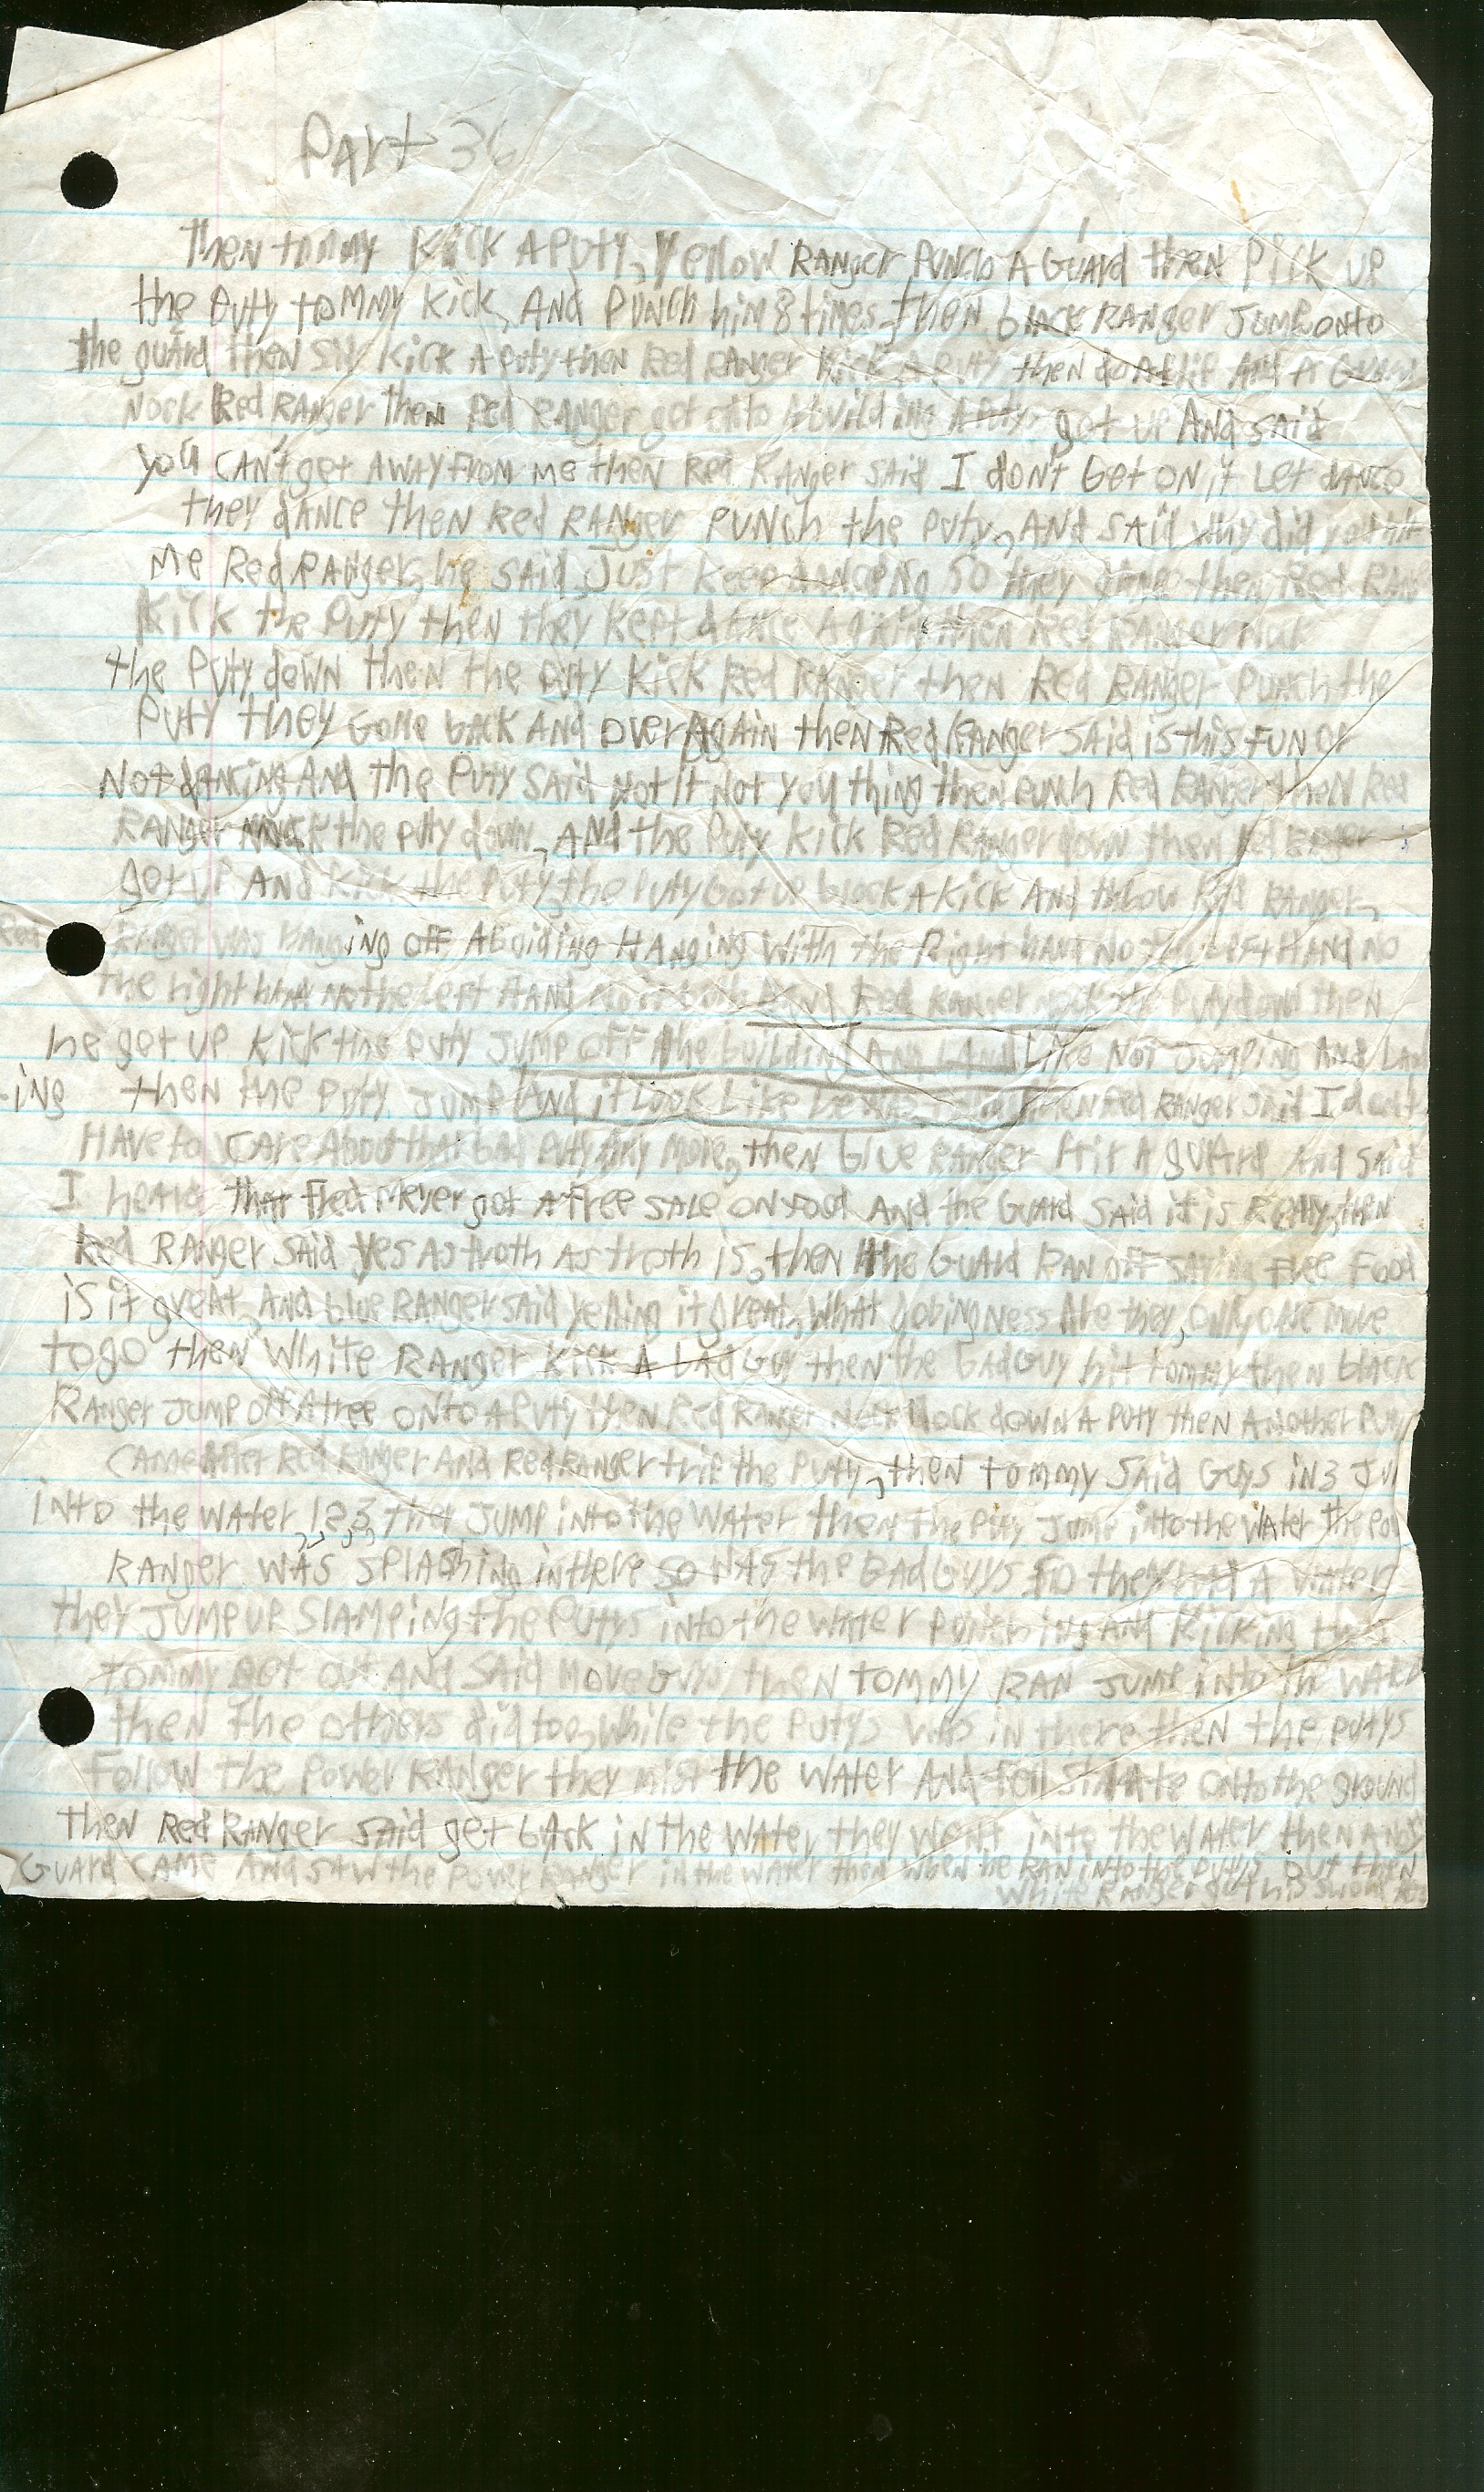 Part 36
then tommy kick A Puty, Yellow RANger Punch A GuArd then Pick up
the Puty tommy kick, ANd PUNch him 8 times, then black RANger Jump onto
the guard then kick A Puty then Red RANger kick A Puty then do A flip And A
Nock Red RANger then Red RANger got onto A building A Puty got up And said
you CAN't get AWAY From me then Red RANger said I don't Get ON it Let dance
they dANce then Red RANger PUNch the Puty, AND SAid why did you hit
me Red RANger, he SAid Just keep dANcing So they dance then Red RAN
Kick the Puty then they kept dance Again then Red RANger
the Puty down then the Puty Kick Red RANger then Red RANger Punch the
Puty they Gone back And over Again then Red RANger said is this FUN or
Not dancing And the Puty SAid Not it Not you thing then Punch Red RANger then Red
RANger the Puty down, ANd the Puty kick Red RANger down then
Got up ANd kick the Puty, the Puty Got up block A kick And thlow Red RANger,
RANger was hanging off A Hanging with the Right hand No the Left HANd NO
the right hand No the Left HANd No Red RANger the Puty down then
he got up kick the Puty JUMP OFF the building And Land Like Not Jumping And LAN
-ing then the Puty JUMP And it Look Like he was then Red RANger said I don't
HAve to CAre About that bad Puty Any More, then blue RANger Hit A guard And said
I heard that Fred Meyer got A Free SALe ON Food And the Guard SAid it is Really, then
Red RANger SAid Yes As troth As troth is, then the GuArd RAN off saying Free Food
is it great, And blue RANger said it great, what Are they, only one more
to go then White RANger kick A bad Guy then the bad Guy hit tommy then black
RANger Jump off A tree onto A Puty then Red RANger Nock down A Puty then Another Puty
CAme After Red RANger And Red RANger trip the Puty, then tommy SAid Guys in 3
into the water 1, 2, 3, Jump into the Water then the Puty Jump into the WAter the
RANger wAs SPLAShing in there so was the BAd Guys So they had A Water
they Jump up Slamping the Putys into the water Punching And Kicking
tommy Got out And SAid then tommy RAN JUMP into the Water
then the others did too, while the Putys was in there then the Putys
Follow the Power RANger they mist the WAter And Fell onto the ground
then Red RANger SAid get bAck in the Water they Went into the Water then
GuArd CAme And SAw the Power RANger in the water then when he RAN into the Putys but then
White RANger got his